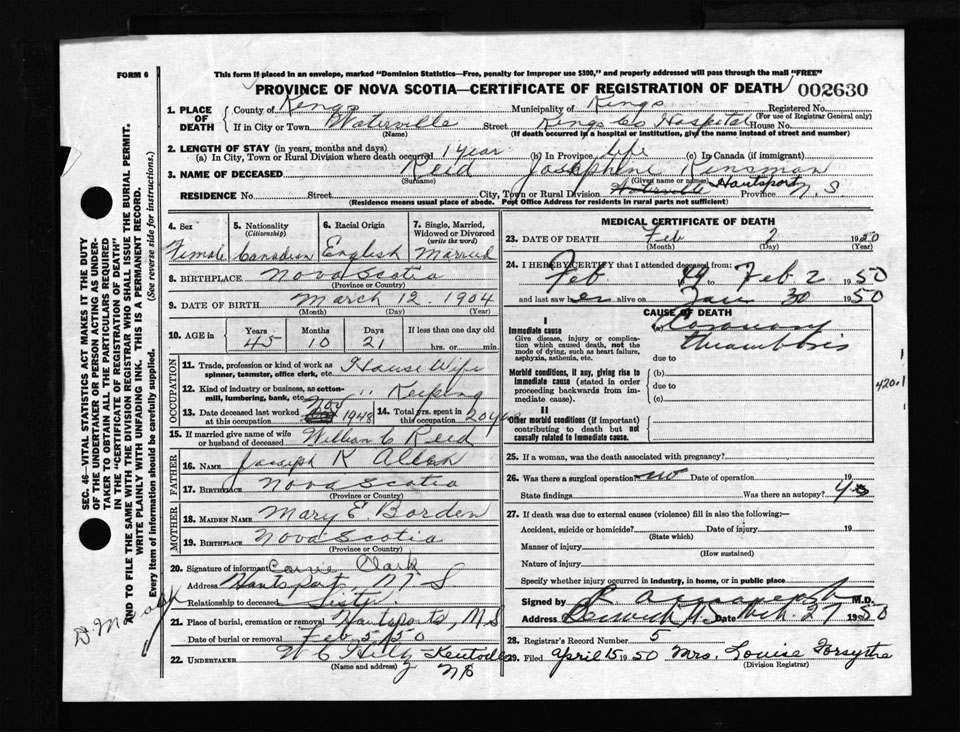 FORM 6
This form if placed in an envelope, marked "Dominion Statistics—Free, penalty for improper use $300," and properly addressed will pass through the mail "FREE"
PROVINCE OF NOVA SCOTIA—CERTIFICATE OF REGISTRATION OF DEATH
002630
1. PLACE OF DEATH County of Kings Municipality of Kings Registered No.
(For use of Registrar General only)
If in City or Town Waterville Street Kings Co Hospital House No.
(Name) (If death occurred in a hospital or institution, give the name instead of street and number)
2. LENGTH OF STAY (in years, months and days)
(a) In City, Town or Rural Division where death occurred 1 year (b) In Province life (c) In Canada (if immigrant)
3. NAME OF DECEASED Reid Josephine Kinsman
(Surname) (Given name or names)
RESIDENCE No. Street City, Town or Rural Division Waterville Hantsport Province N.S
(Residence means usual place of abode. Post Office Address for residents in rural parts not sufficient)
4. Sex 5. Nationality (Citizenship) 6. Racial Origin 7. Single, Married, Widowed or Divorced (write the word)
Female Canadian English Married
8. BIRTHPLACE Nova Scotia
(Province or Country)
9. DATE OF BIRTH March 12 1904
(Month) (Day) (Year)
10. AGE in Years Months Days If less than one day old
45 10 21 hrs. or min.
OCCUPATION
11. Trade, profession or kind of work as spinner, teamster, office clerk, etc. House Wife
12. Kind of industry or business, as cotton-mill, lumbering, bank, etc. " Keeping
13. Date deceased last worked at this occupation Nov 1948 14. Total yrs. spent in this occupation 20 years
15. If married give name of wife or husband of deceased William C Reid
FATHER
16. NAME Joseph K Allen
17. BIRTHPLACE Nova Scotia
(Province or Country)
MOTHER
18. MAIDEN NAME Mary E Borden
19. BIRTHPLACE Nova Scotia
(Province or Country)
20. Signature of informant Carrie Clark
Address Hantsport, N S
Relationship to deceased Sister.
21. Place of burial, cremation or removal Hantsport, N S
Date of burial or removal Feb 5/50
22. UNDERTAKER W C Hiltz Kentville
(Name and address) NS
MEDICAL CERTIFICATE OF DEATH
23. DATE OF DEATH Feb 2 1950
(Month) (Day) (Year)
24. I HEREBY CERTIFY that I attended deceased from:
Feb 49 to Feb 2 1950
and last saw her alive on Jan 30 1950
CAUSE OF DEATH
I
Immediate cause (a) Coronary thrombosis
Give disease, injury or complication which caused death, not the mode of dying, such as heart failure, asphyxia, asthenia, etc. due to
Morbid conditions, if any, giving rise to immediate cause (stated in order proceeding backwards from immediate cause). (b)
due to
(c)
420.1
II
Other morbid conditions (if important) contributing to death but not causally related to immediate cause.
25. If a woman, was the death associated with pregnancy?
26. Was there a surgical operation no Date of operation 19
State findings Was there an autopsy? Yes
27. If death was due to external causes (violence) fill in also the following:—
Accident, suicide or homicide? Date of injury 19
(State which)
Manner of injury
(How sustained)
Nature of injury
Specify whether injury occurred in industry, in home, or in public place
Signed by M.D.
Address Berwick N.S Date Mch. 27 1950
28. Registrar's Record Number 5
29. Filed April 15 1950 Mrs. Louise Forsythe
(Division Registrar)
SEC. 46—VITAL STATISTICS ACT MAKES IT THE DUTY OF THE UNDERTAKER OR PERSON ACTING AS UNDERTAKER TO OBTAIN ALL THE PARTICULARS REQUIRED IN THE "CERTIFICATE OF REGISTRATION OF DEATH" AND TO FILE THE SAME WITH THE DIVISION REGISTRAR WHO SHALL ISSUE THE BURIAL PERMIT.
WRITE PLAINLY WITH UNFADING INK. THIS IS A PERMANENT RECORD.
Every item of information should be carefully supplied. (See reverse side for instructions.)